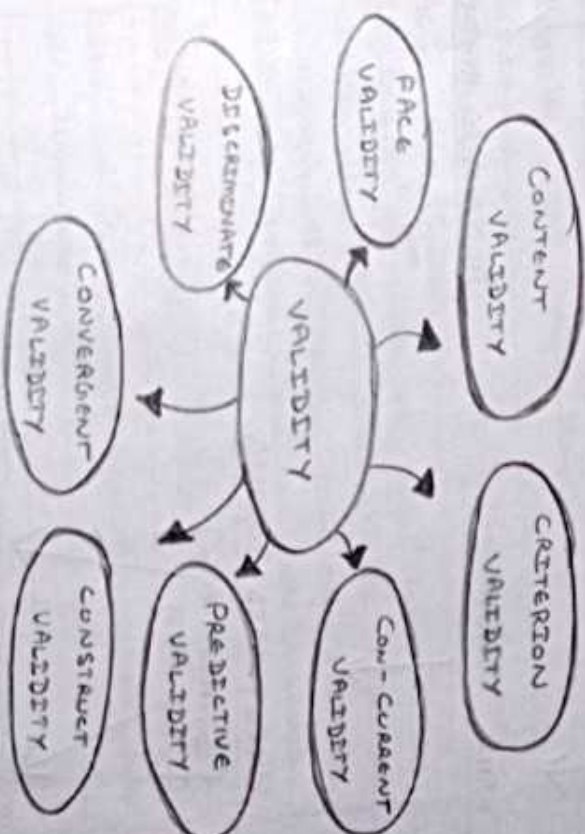 CONTENT
VALIDITY
CRITERION
VALIDITY
FACE
VALIDITY
CON-CURRENT
VALIDITY
VALIDITY
DISCRIMINATE
VALIDITY
PREDICTIVE
VALIDITY
CONVERGENT
VALIDITY
CONSTRUCT
VALIDITY